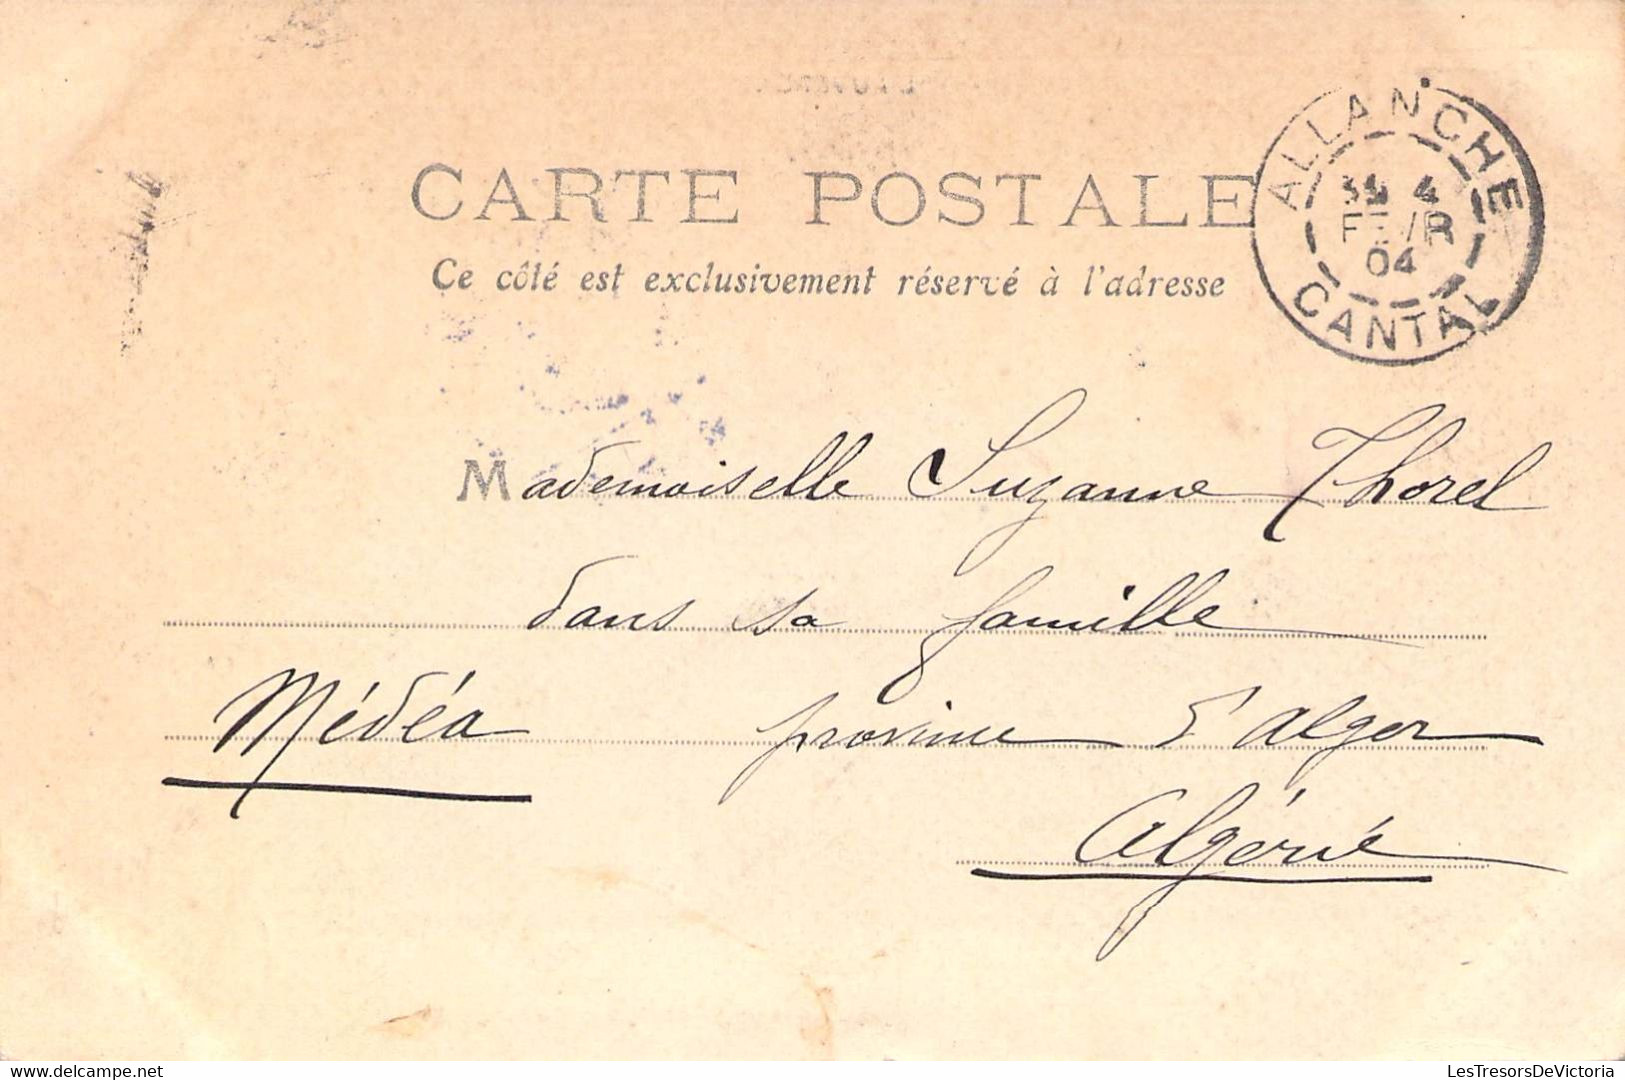 CARTE POSTALE
Ce côté est exclusivement réservé à l'adresse
ALLANCHE
4
FEVR
04
CANTAL
Mademoiselle Suzanne Thorel
dans sa famille
Médéa province d'Alger
Algérie
delcampe.net
LesTresorsDeVictoria